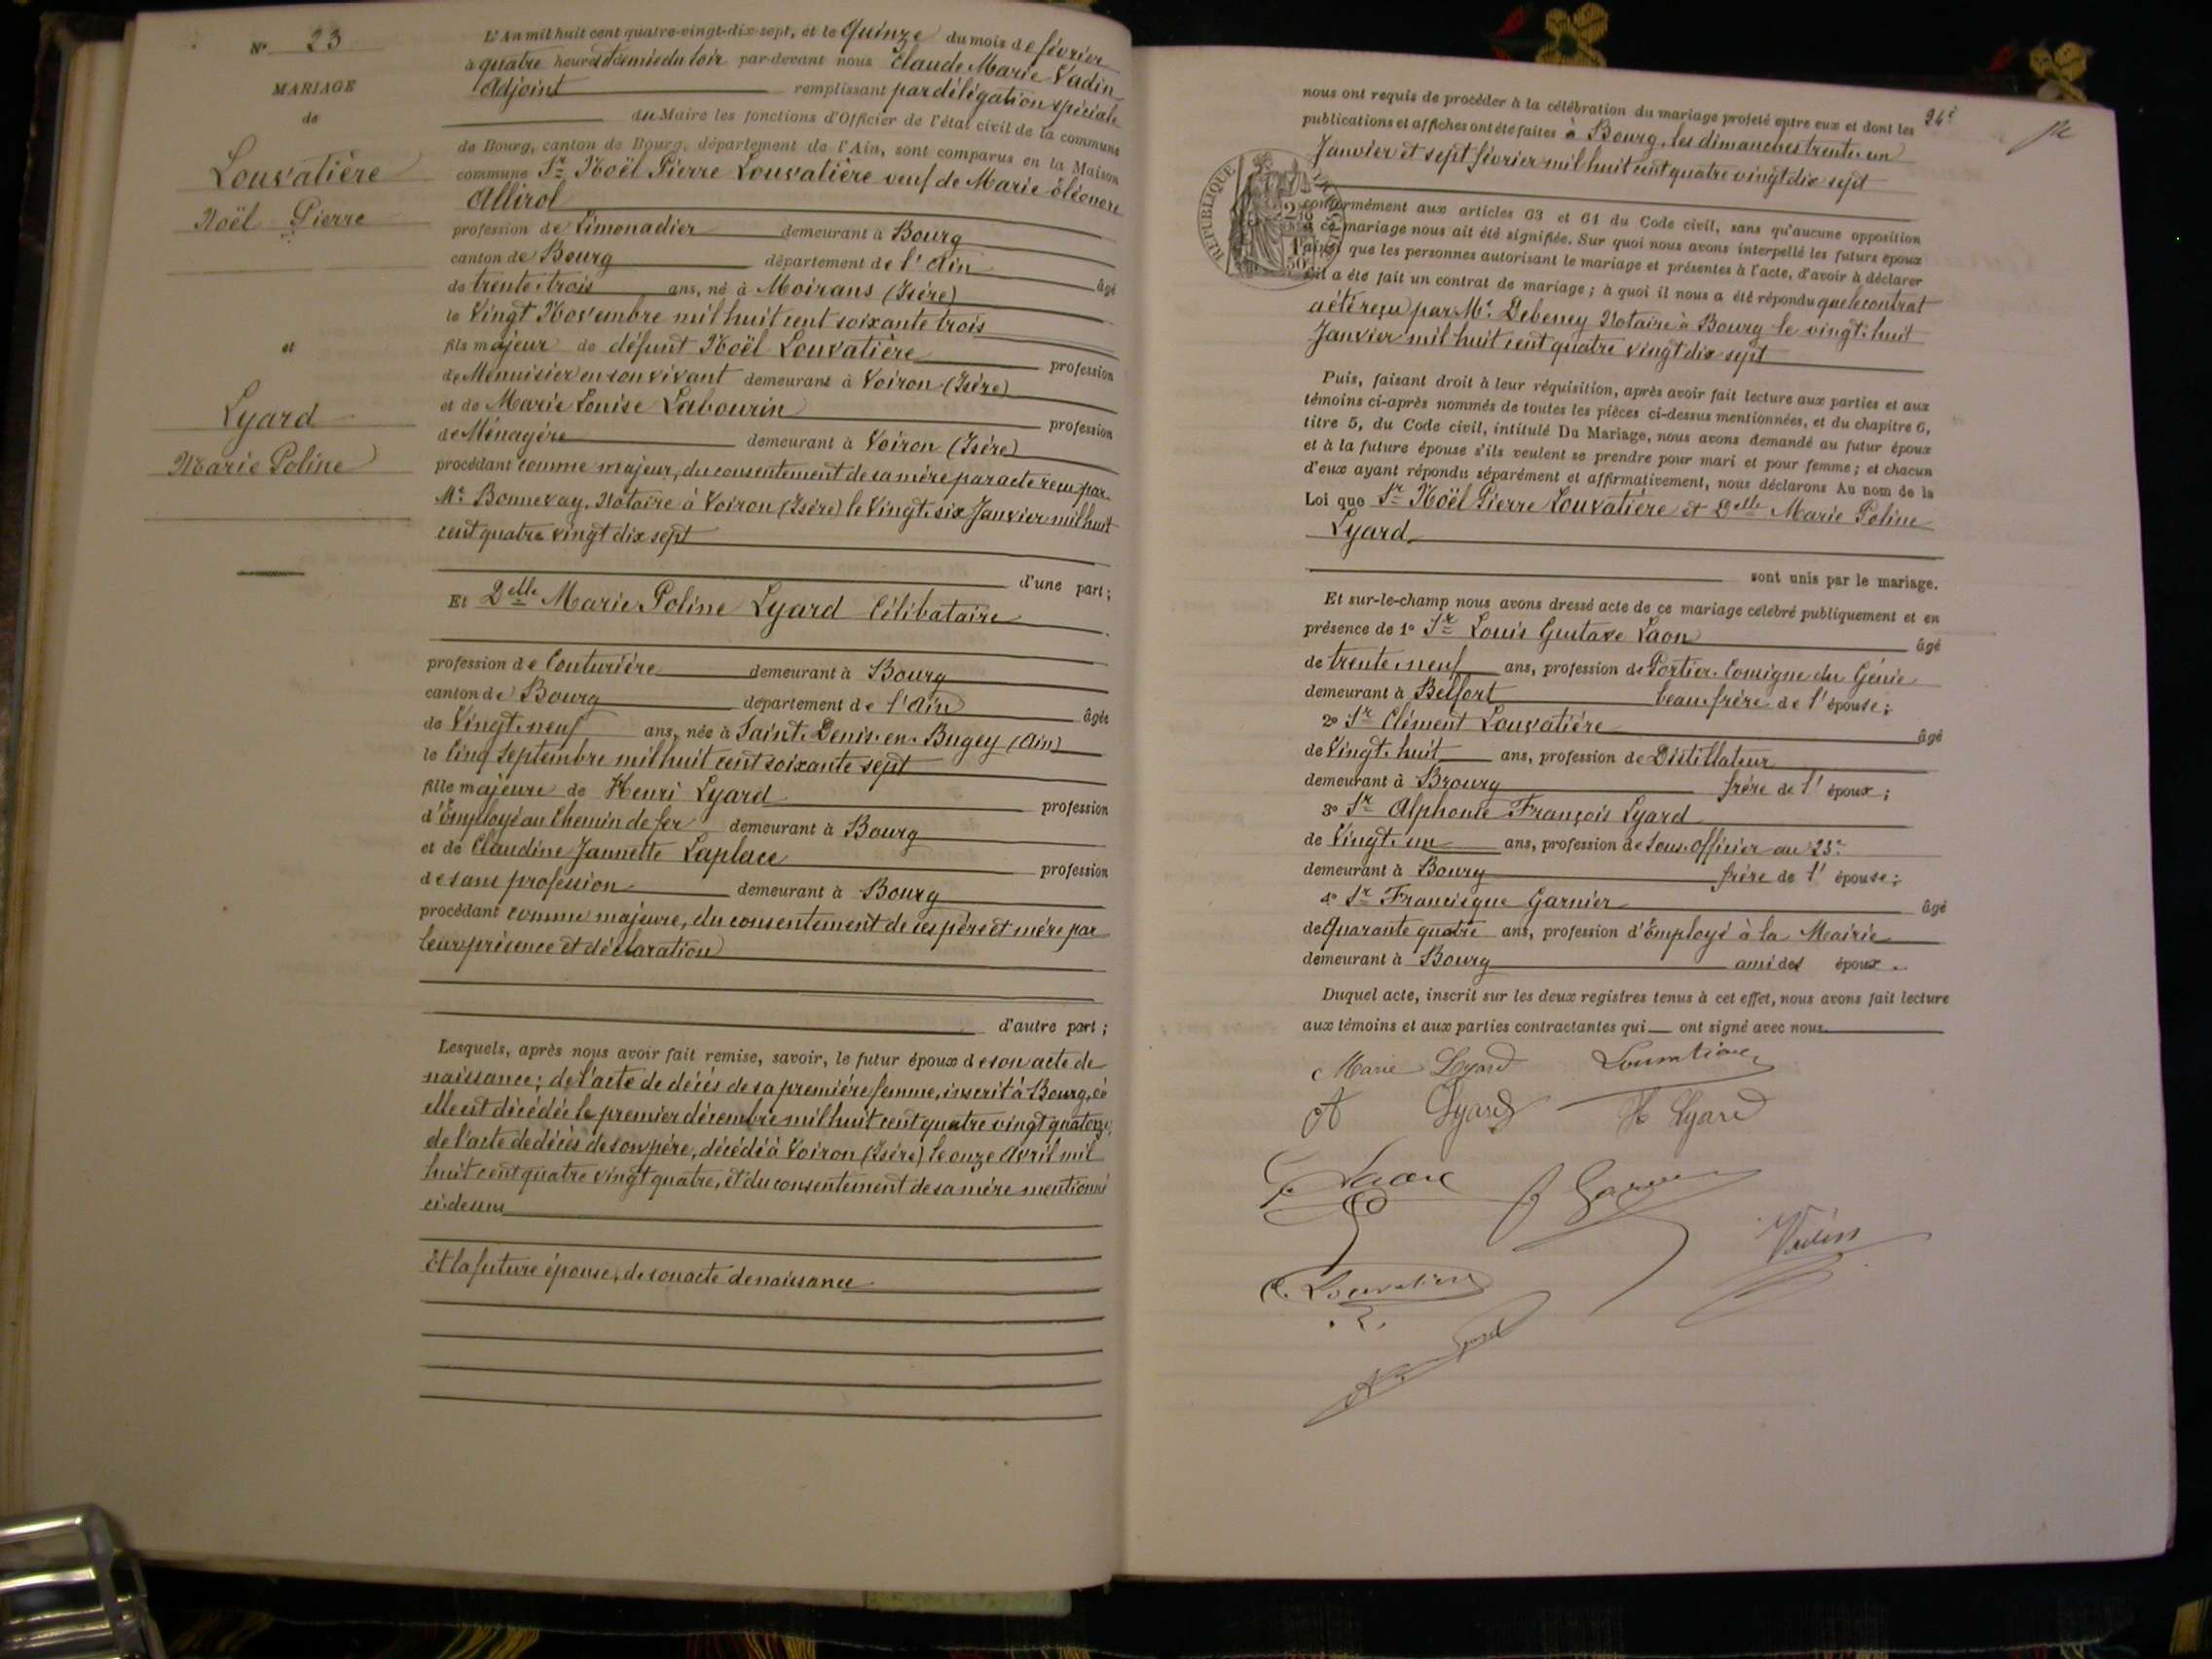 N° 23
MARIAGE
de
Louvatière
Noël Pierre
et
Lyard
Marie Poline
L'An mil huit cent quatre-vingt-dix-sept, et le Quinze du mois de février
à quatre heures et demie du soir par-devant nous Claude Marie Vadin
Adjoint remplissant par délégation spéciale
du Maire les fonctions d'Officier de l'état civil de la commune
de Bourg, canton de Bourg, département de l'Ain, sont comparus en la Maison
commune Sr Noël Pierre Louvatière veuf de Marie Eléonore
Allirol
profession de Limonadier demeurant à Bourg
canton de Bourg département de l'Ain âgé
de trente trois ans, né à Moirans (Isère)
le Vingt Novembre mil huit cent soixante trois
fils majeur de défunt Noël Louvatière profession
de Menuisier en son vivant demeurant à Voiron (Isère)
et de Marie Louise Labourin profession
de Ménagère demeurant à Voiron (Isère)
procédant comme majeur, du consentement de sa mère par acte reçu par
Me Bonnevay, Notaire à Voiron (Isère) le Vingt-six Janvier mil huit
cent quatre vingt dix sept
d'une part;
Et Delle Marie Poline Lyard Célibataire
profession de Couturière demeurant à Bourg
canton de Bourg département de l'Ain âgée
de Vingt-neuf ans, née à Saint-Denis-en-Bugey (Ain)
le Cinq Septembre mil huit cent soixante sept
fille majeure de Henri Lyard profession
d'Employé au Chemin de fer demeurant à Bourg
et de Claudine Jannette Laplace profession
de sans profession demeurant à Bourg
procédant comme majeure, du consentement de ses père et mère par
leur présence et déclaration
d'autre part;
Lesquels, après nous avoir fait remise, savoir, le futur époux de son acte de
naissance; de l'acte de décès de sa première femme, inscrit à Bourg, où
elle est décédée le premier décembre mil huit cent quatre vingt quatorze;
de l'acte de décès de son père, décédé à Voiron (Isère) le onze Avril mil
huit cent quatre vingt quatre, et du consentement de sa mère mentionné
ci-dessus
Et la future épouse, de son acte de naissance
24e
nous ont requis de procéder à la célébration du mariage projeté entre eux et dont les
publications et affiches ont été faites à Bourg, les dimanches trente-un
Janvier et sept février mil huit cent quatre vingt dix sept
RÉPUBLIQUE
conformément aux articles 63 et 64 du Code civil, sans qu'aucune opposition
à ce mariage nous ait été signifiée. Sur quoi nous avons interpellé les futurs époux
ainsi que les personnes autorisant le mariage et présentes à l'acte, d'avoir à déclarer
s'il a été fait un contrat de mariage; à quoi il nous a été répondu que le contrat
a été reçu par Me Debeney Notaire à Bourg le vingt-huit
Janvier mil huit cent quatre vingt dix sept
Puis, faisant droit à leur réquisition, après avoir fait lecture aux parties et aux
témoins ci-après nommés de toutes les pièces ci-dessus mentionnées, et du chapitre 6,
titre 5, du Code civil, intitulé Du Mariage, nous avons demandé au futur époux
et à la future épouse s'ils veulent se prendre pour mari et pour femme; et chacun
d'eux ayant répondu séparément et affirmativement, nous déclarons Au nom de la
Loi que Sr Noël Pierre Louvatière et Delle Marie Poline
Lyard
sont unis par le mariage.
Et sur-le-champ nous avons dressé acte de ce mariage célébré publiquement et en
présence de 1° Sr Louis Gustave Laon âgé
de trente-neuf ans, profession de Portier-Consigne du Génie
demeurant à Belfort beau-frère de l'épouse;
2° Sr Clément Louvatière âgé
de Vingt-huit ans, profession de Distillateur
demeurant à Brourg frère de l'époux;
3° Sr Alphonse François Lyard
de Vingt-un ans, profession de Sous-Officier au 23e
demeurant à Bourg frère de l'épouse;
4° Sr Francisque Garnier âgé
de Quarante quatre ans, profession d'Employé à la Mairie
demeurant à Bourg ami des époux.
Duquel acte, inscrit sur les deux registres tenus à cet effet, nous avons fait lecture
aux témoins et aux parties contractantes qui ont signé avec nous.
Marie Lyard Louvatière
A Lyard H Lyard
G. Laon F Garnier
Vadin
C. Louvatière